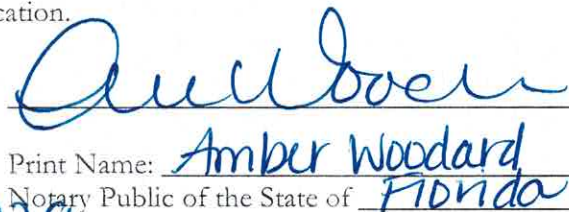 cation.
Print Name: Amber Woodard
Notary Public of the State of Florida